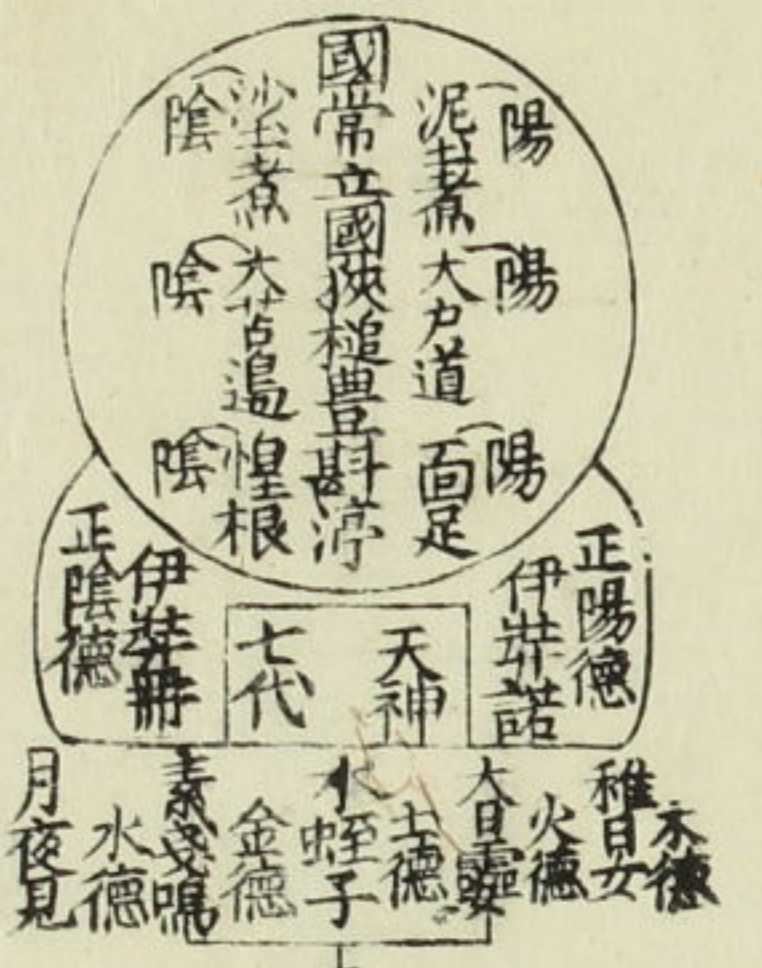 陽
泥土煮
陽
大户道
陽
面足
國常立國狹槌豊斟渟
沙土煮
陰
大苫邉
陰
惶根
陰
正陽德
伊弉諾
天神
七代
伊弉冊
正陰德
木德
稚日女
火德
大日孁
土德
水蛭子
金德
素戔鳴
水德
月夜見